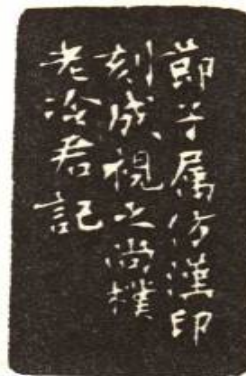 節子属仿漢印
刻成視之尚樸
老冷君記